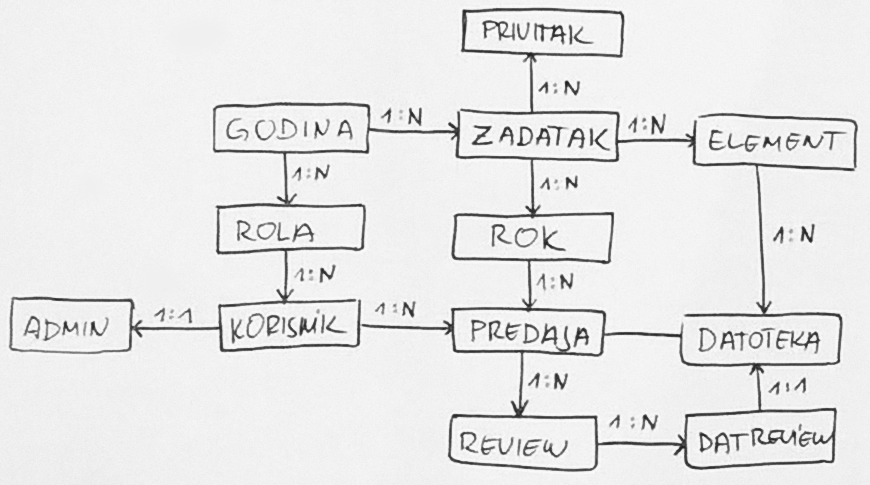 PRIVITAK
1:N
GODINA
1:N
ZADATAK
1:N
ELEMENT
1:N
1:N
ROLA
ROK
1:N
1:N
1:N
ADMIN
1:1
KORISNIK
1:N
PREDAJA
DATOTEKA
1:N
1:1
REVIEW
1:N
DATREVIEW